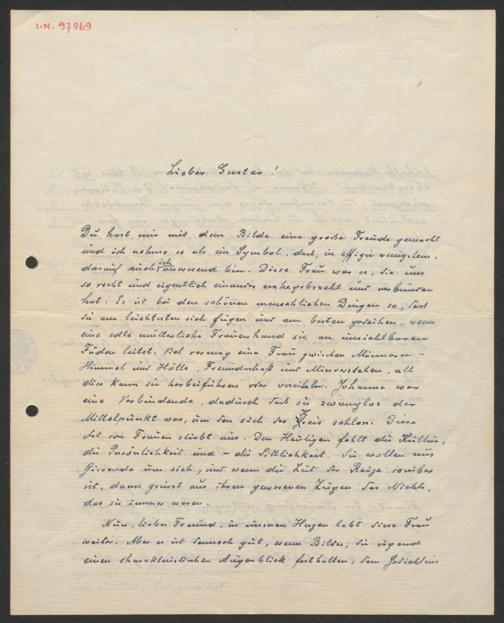 I.N. 97969
Lieber Gustav!
Du hast mir mit dem Bilde eine große Freude gemacht
und ich nehme es als ein Symbol, dass, in effigie wenigstens,
darauf auch ich anwesend bin. Diese Frau war es, die uns
so recht und eigentlich einander nahegebracht und verbunden
hat. Es ist bei den schönen menschlichen Dingen so, dass
sie am leichtesten sich fügen und am besten gedeihen, wenn
eine edle mütterliche Frauenhand sie an unsichtbaren
Fäden leitet. Viel vermag eine Frau zwischen Männern –
Himmel und Hölle, Freundschaft und Missverstehen, all
dies kann sie herbeiführen oder vereiteln. Johanna war
eine Verbindende, dadurch dass sie zwanglos der
Mittelpunkt war, um den sich der Kreis schloss. Diese
Art von Frauen stirbt aus. Den Heutigen fehlt die Kultur,
die Persönlichkeit und – die Sittlichkeit. Sie wollen nur
Girrende um sich, und wenn die Zeit der Reize vorüber
ist, dann grinst aus ihren gewesenen Zügen das Nichts,
das sie immer waren.
Nun, lieber Freund, in unseren Herzen lebt diese Frau
weiter. Aber es ist dennoch gut, wenn Bilder, die irgend
einen charakteristischen Augenblick festhalten, dem Gedächtnis